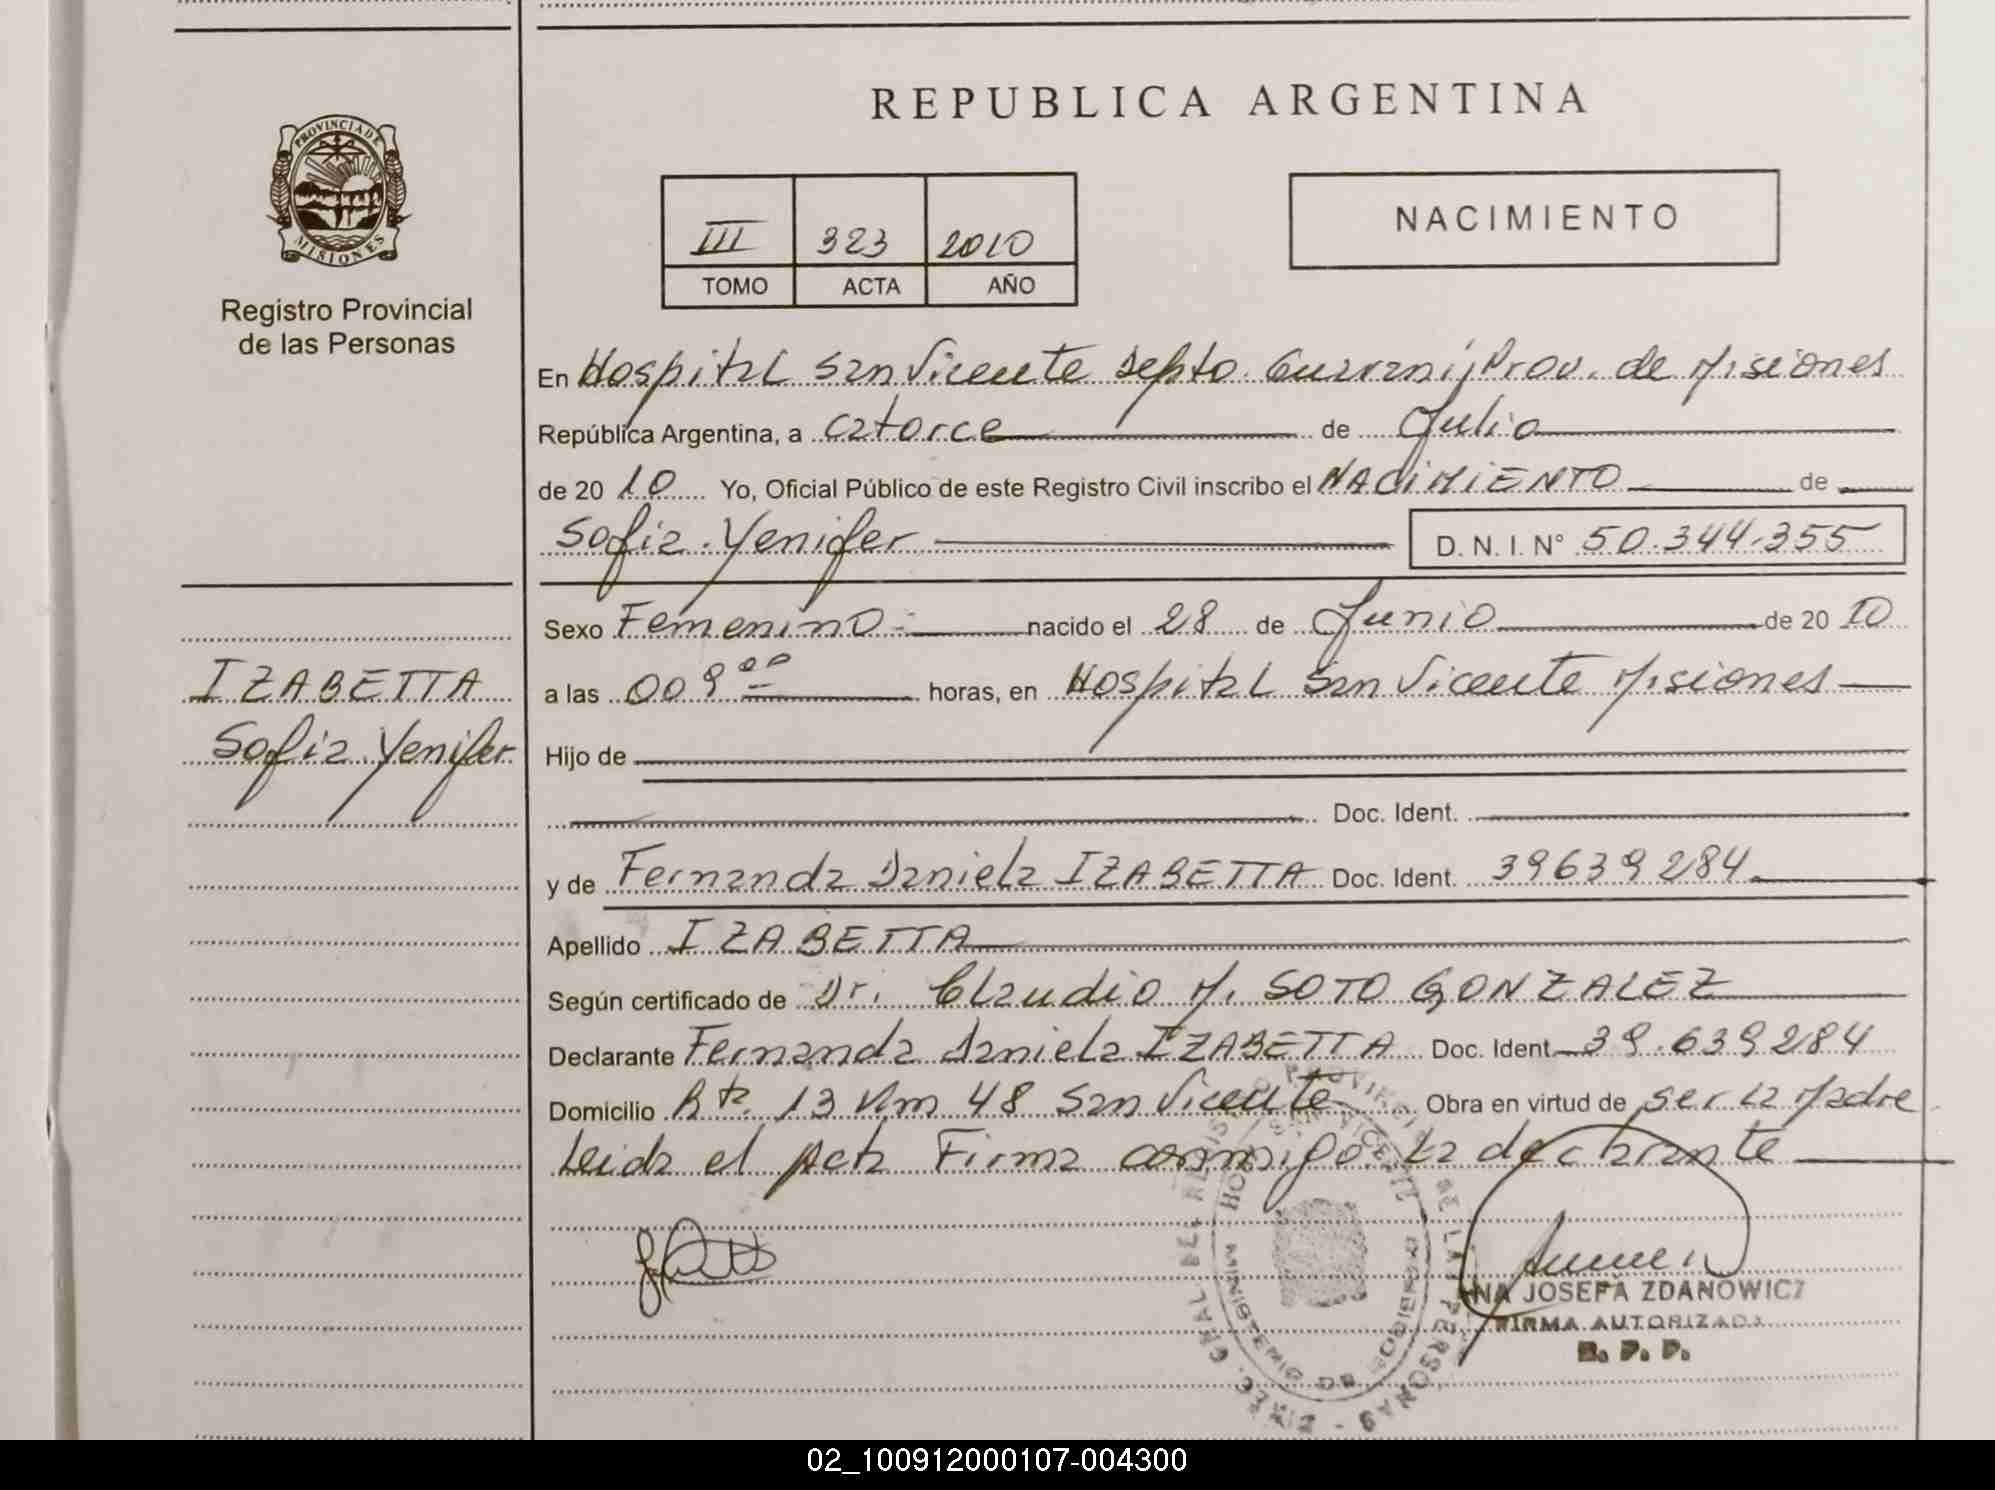 REPUBLICA ARGENTINA
PROVINCIA DE
MISIONES
Registro Provincial
de las Personas
III 323 2010
TOMO ACTA AÑO
NACIMIENTO
En Hospital San Vicente Depto. Guaraní, Prov. de Misiones
República Argentina, a catorce de Julio
de 20 10 Yo, Oficial Público de este Registro Civil inscribo el NACIMIENTO de
Sofia Yenifer D. N. I. N° 50.344.355
IZABETTA
Sofia Yenifer
Sexo Femenino nacido el 28 de Junio de 20 10
a las 009 00 horas, en Hospital San Vicente Misiones
Hijo de
Doc. Ident.
y de Fernanda Daniela IZABETTA Doc. Ident. 39639284
Apellido IZABETTA
Según certificado de Dr. Claudio M. SOTO GONZALEZ
Declarante Fernanda Daniela IZABETTA Doc. Ident. 39.639284
Domicilio Rta. 13 Km 48 San Vicente Obra en virtud de ser la Madre
Leida el Acta Firma conmigo la declarante
NA JOSEFA ZDANOWICZ
FIRMA AUTORIZADA
R. P. P.
02_100912000107-004300